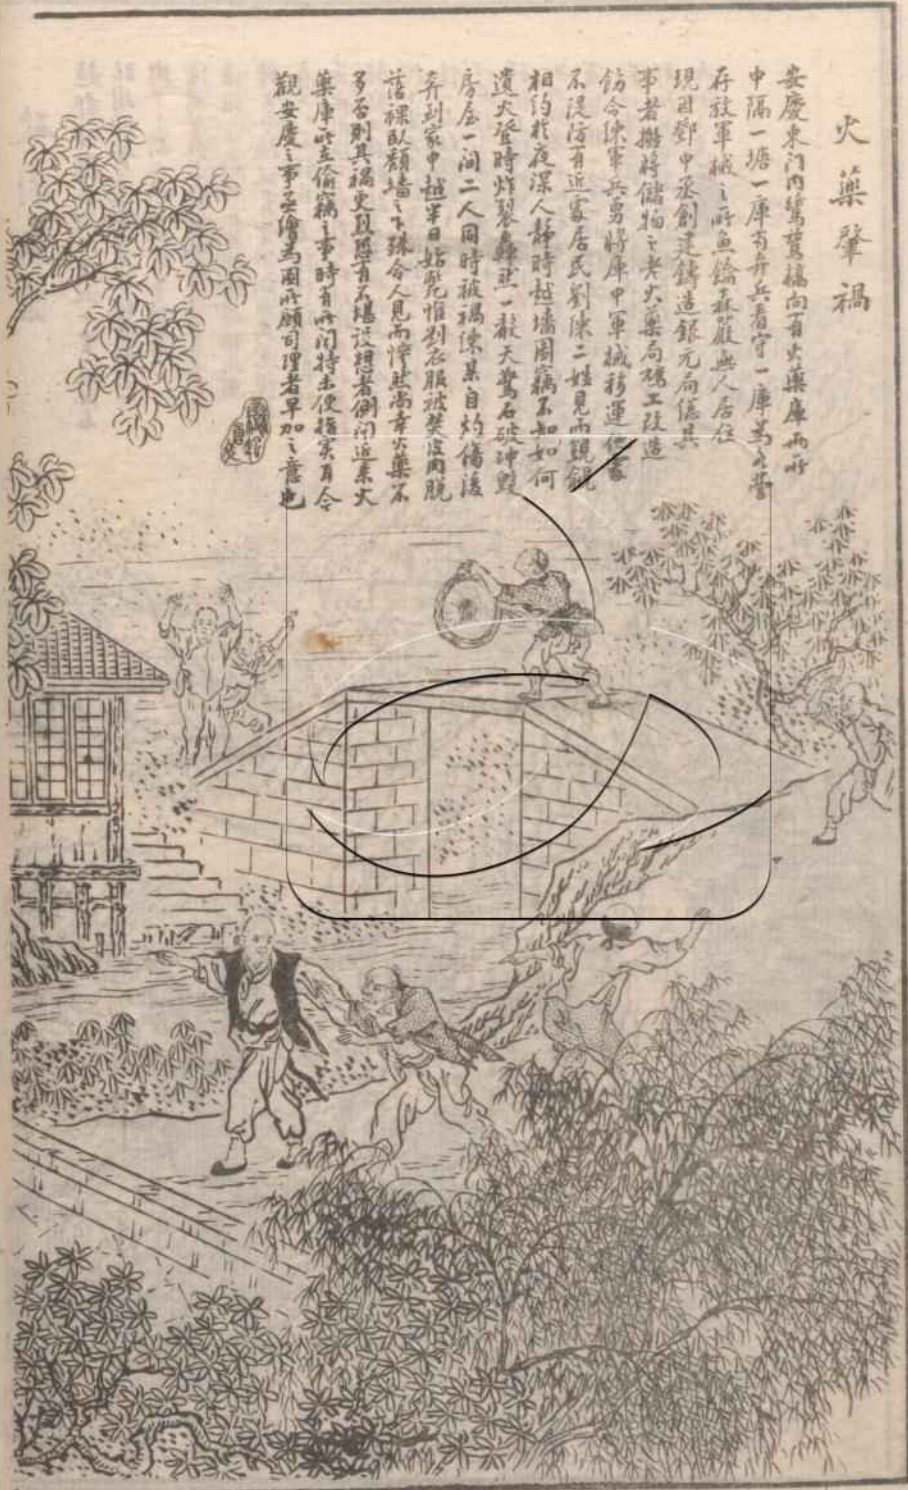 火藥肇禍
安慶東門內鷺鷥橋向有火藥庫兩所
中隔一塘一庫有弁兵看守一庫為各營
存放軍械之所魚鑰森嚴無人居住
現因鄧中丞創建鑄造銀元局 其
事者擬將儲物之老火藥局鳩工改造
飭令練軍兵勇將庫中軍械移運他處
不 防有近處居民劉陳二姓見而覬覦
相約於夜深人靜時越墻圖竊不知如何
遺火登時炸裂轟然一聲天驚石破沖毀
房屋一間二人同時被禍陳某自灼傷後
奔到家中越半日始斃惟劉衣服被焚皮肉脫
落裸臥頹墻之下殊令人見而慘然尚幸火藥不
多否則其禍更烈恐有不堪設想者側聞近來火
藥庫所在偷竊之事時有所聞特未便指實耳今
觀安慶之事亟繪為圖所願司理者早加之意也